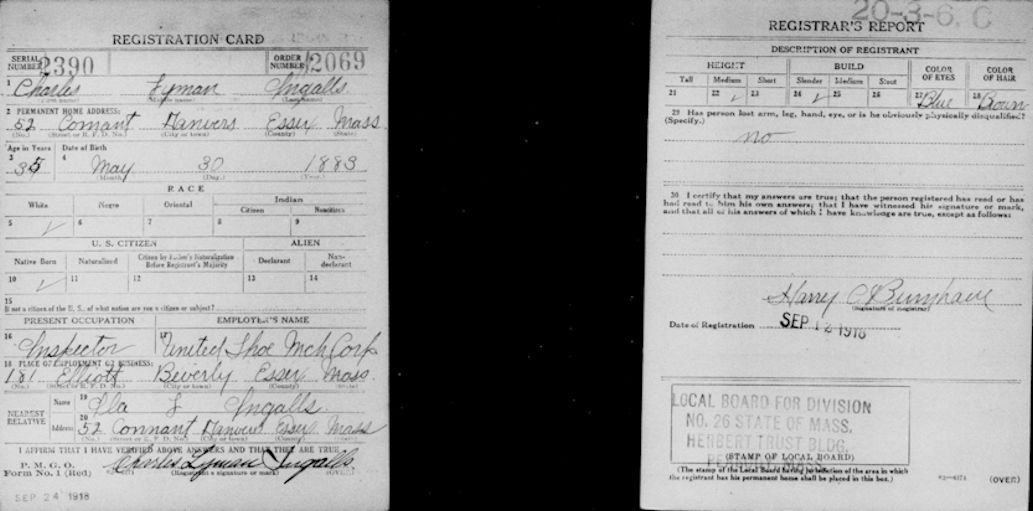 REGISTRATION CARD
SERIAL NUMBER 2390 ORDER NUMBER 12069
1 Charles Lyman Ingalls
(First name) (Middle name) (Last name)
2 PERMANENT HOME ADDRESS:
52 Conant Danvers Essex Mass.
(No.) (Street or R. F. D. No.) (City or town) (County) (State)
Age in Years Date of Birth
3 35 4 May 30 1883
(Month.) (Day.) (Year.)
RACE
White Negro Oriental Indian
Citizen Noncitizen
5 ✓ 6 7 8 9
U. S. CITIZEN ALIEN
Native Born Naturalized Citizen by Father's Naturalization Before Registrant's Majority Declarant Non-declarant
10 ✓ 11 12 13 14
15
If not a citizen of the U. S., of what nation are you a citizen or subject?
PRESENT OCCUPATION EMPLOYER'S NAME
16 Inspector 17 United Shoe Mch Corp
18 PLACE OF EMPLOYMENT OR BUSINESS:
181 Elliott Beverly Essex Mass.
(No.) (Street or R. F. D. No.) (City or town) (County) (State)
NEAREST RELATIVE Name 19 Ingalls
Address 20 52 Connant Danvers Essex Mass
(No.) (Street or R. F. D. No.) (City or town) (County) (State)
I AFFIRM THAT I HAVE VERIFIED ABOVE ANSWERS AND THAT THEY ARE TRUE
P. M. G. O.
Form No. 1 (Red) Charles Lyman Ingalls
(Registrant's signature or mark) (OVER)
SEP 24 1918
20-3-6. C
REGISTRAR'S REPORT
DESCRIPTION OF REGISTRANT
HEIGHT BUILD COLOR OF EYES COLOR OF HAIR
Tall Medium Short Slender Medium Stout
21 22 ✓ 23 24 ✓ 25 26 27 Blue 28 Brown
29 Has person lost arm, leg, hand, eye, or is he obviously physically disqualified?
(Specify.)
no
30 I certify that my answers are true; that the person registered has read or has
had read to him his own answers; that I have witnessed his signature or mark,
and that all of his answers of which I have knowledge are true, except as follows:
Harry C.
(Signature of Registrar)
Date of Registration SEP 12 1918
LOCAL BOARD FOR DIVISION
NO. 26 STATE OF MASS.
HERBERT TRUST BLDG.
MASS.
(STAMP OF LOCAL BOARD)
(The stamp of the Local Board having jurisdiction of the area in which
the registrant has his permanent home shall be placed in this box.)
(OVER)